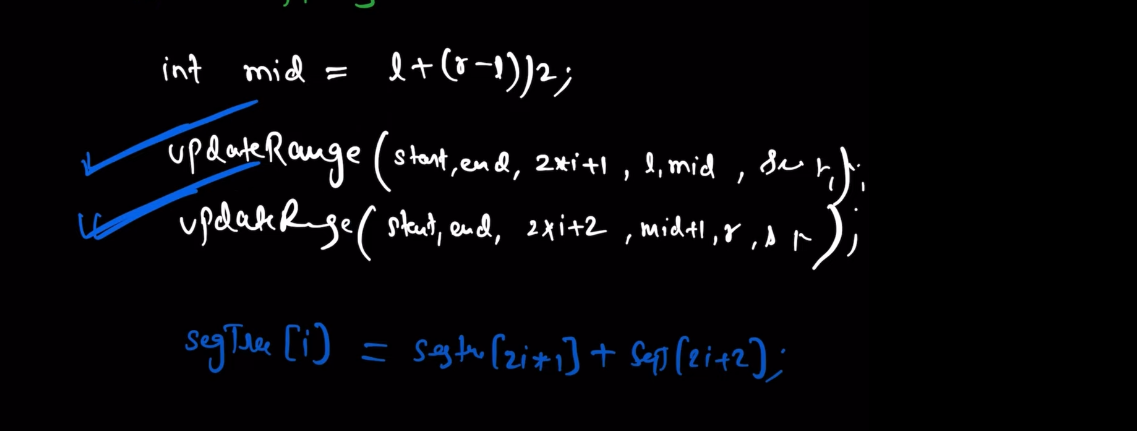 int mid = l+(r-l))/2;
updateRange(start, end, 2*i+1, l, mid,
updateRnge(start, end, 2*i+2, mid+1, r,
segTree[i] = segtr[2i+1] + seg[2i+2];